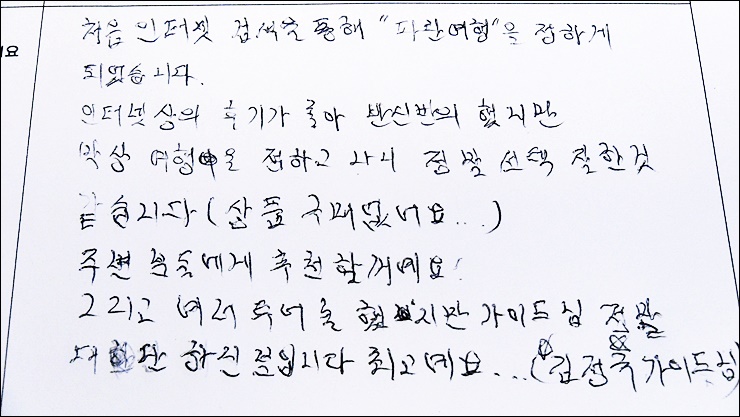 처음 인터넷 검색을 통해 "파란여행"을 접하게
되었습니다.
인터넷상의 후기가 좋아 반신반의 했지만
막상 여행을 접하고 나니 정말 선택 잘한것
같습니다 (상품 구매였네요...)
주변 분들에게 추천할꺼예요!
그리고 여러 투어를 했지만 가이드님 정말
대단 하신 분입니다 최고예요... (김정국 가이드님)